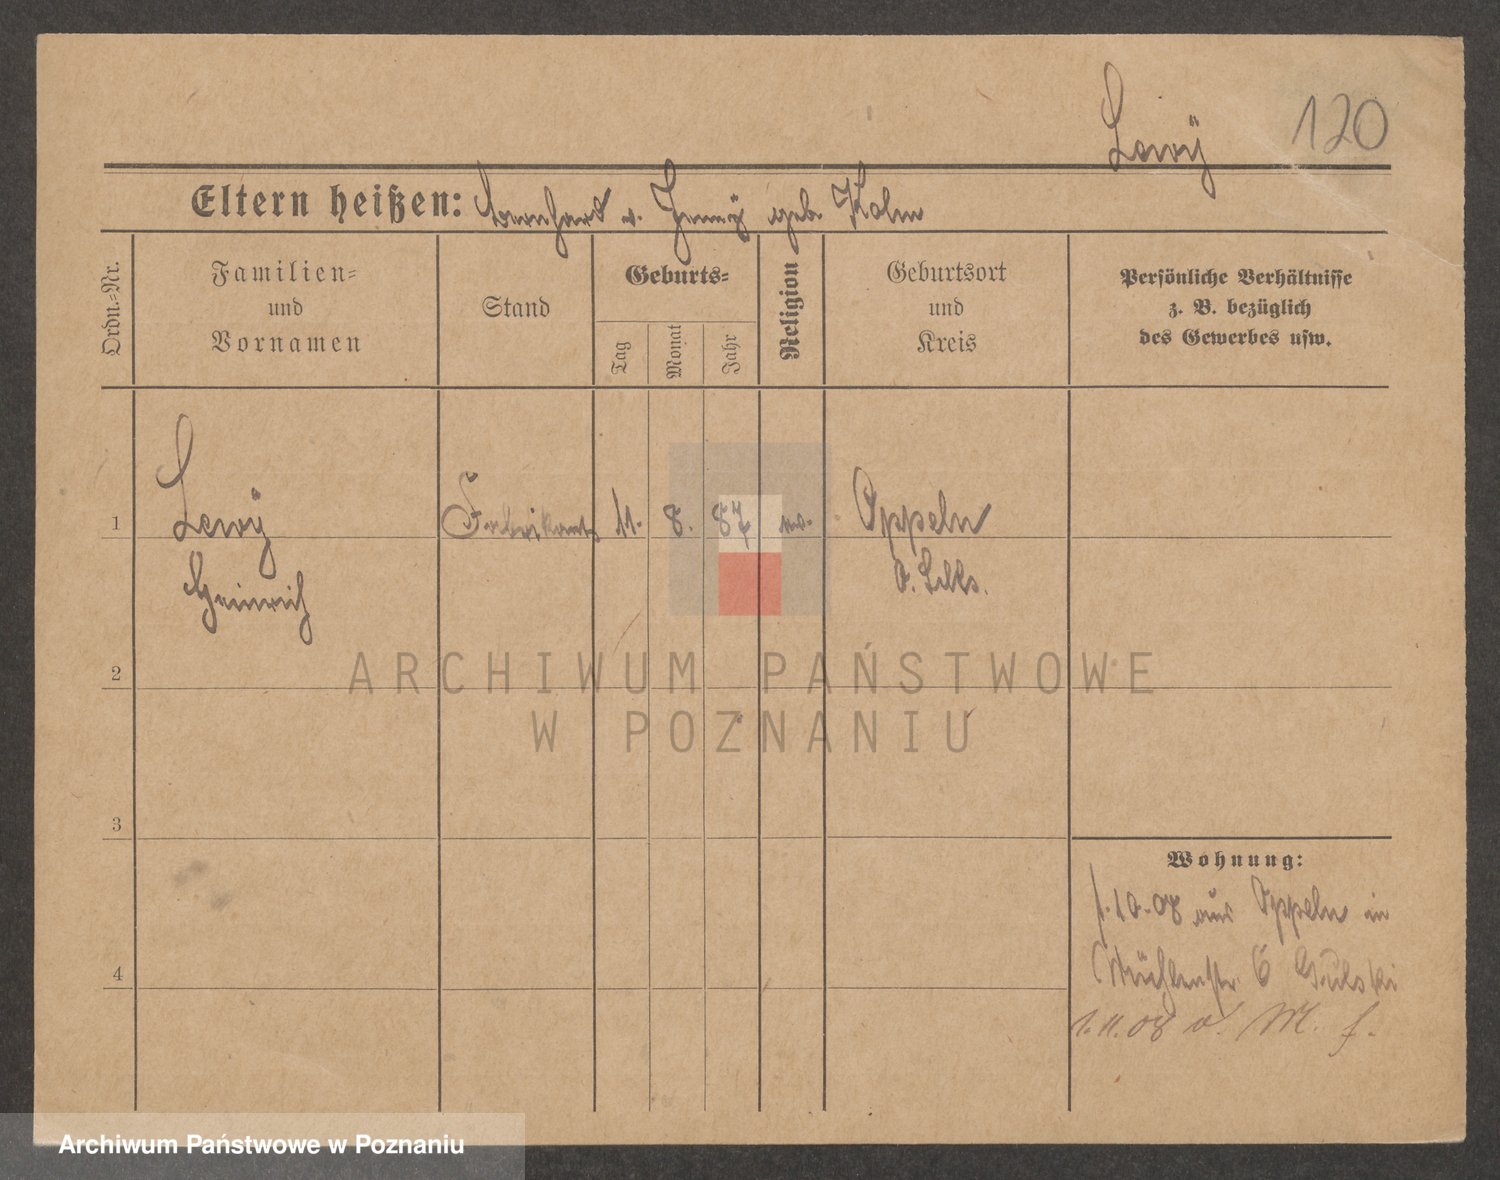 Lewÿ 120
Eltern heißen: Bernhard u. Jennÿ geb.
Ordn.=Nr.
Familien=
und
Vornamen
Stand
Geburts=
Tag
Monat
Jahr
Religion
Geburtsort
und
Kreis
Persönliche Verhältnisse
z. B. bezüglich
des Gewerbes usw.
1 Lewÿ Fabrikant 11. 8. 87 mos. Oppeln
Heinrich O. Schls.
2
3
4
ARCHIWUM PAŃSTWOWE
W POZNANIU
Wohnung:
1.10.08 aus Oppeln in
Mühlenstr. 6
1.11.08 v. M. f.
Archiwum Państwowe w Poznaniu